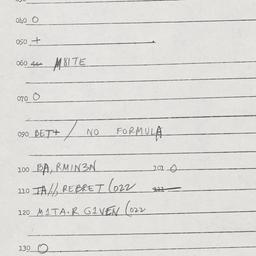 040 O
050 +
060 M8ITE
070 O
090 DET+/ NO FORMULA
100 BA,RMIN3N 101 O
110 IA//,REBRET (022
120 M1TA.R G1VEN (022
130 O